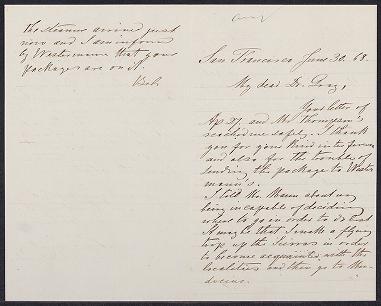 San Francisco June 30. 68.
My dear Dr. Gray,
Your letter of
Ap 27. and Mr Thompson's
reached me safely. I thank
you for your kind interference
and also for the trouble of
sending the package to Wester
mann's.
I told Mr. Mann about my
being incapable of deciding
where to go in order to do best
He urged that I make a flying
trip up the Sierras in order
to become acquainted with the
localities and then go to Men-
docino.
the steamer arrived just
now and I am informed
by Westermann that your
packages are on it.
Bol.